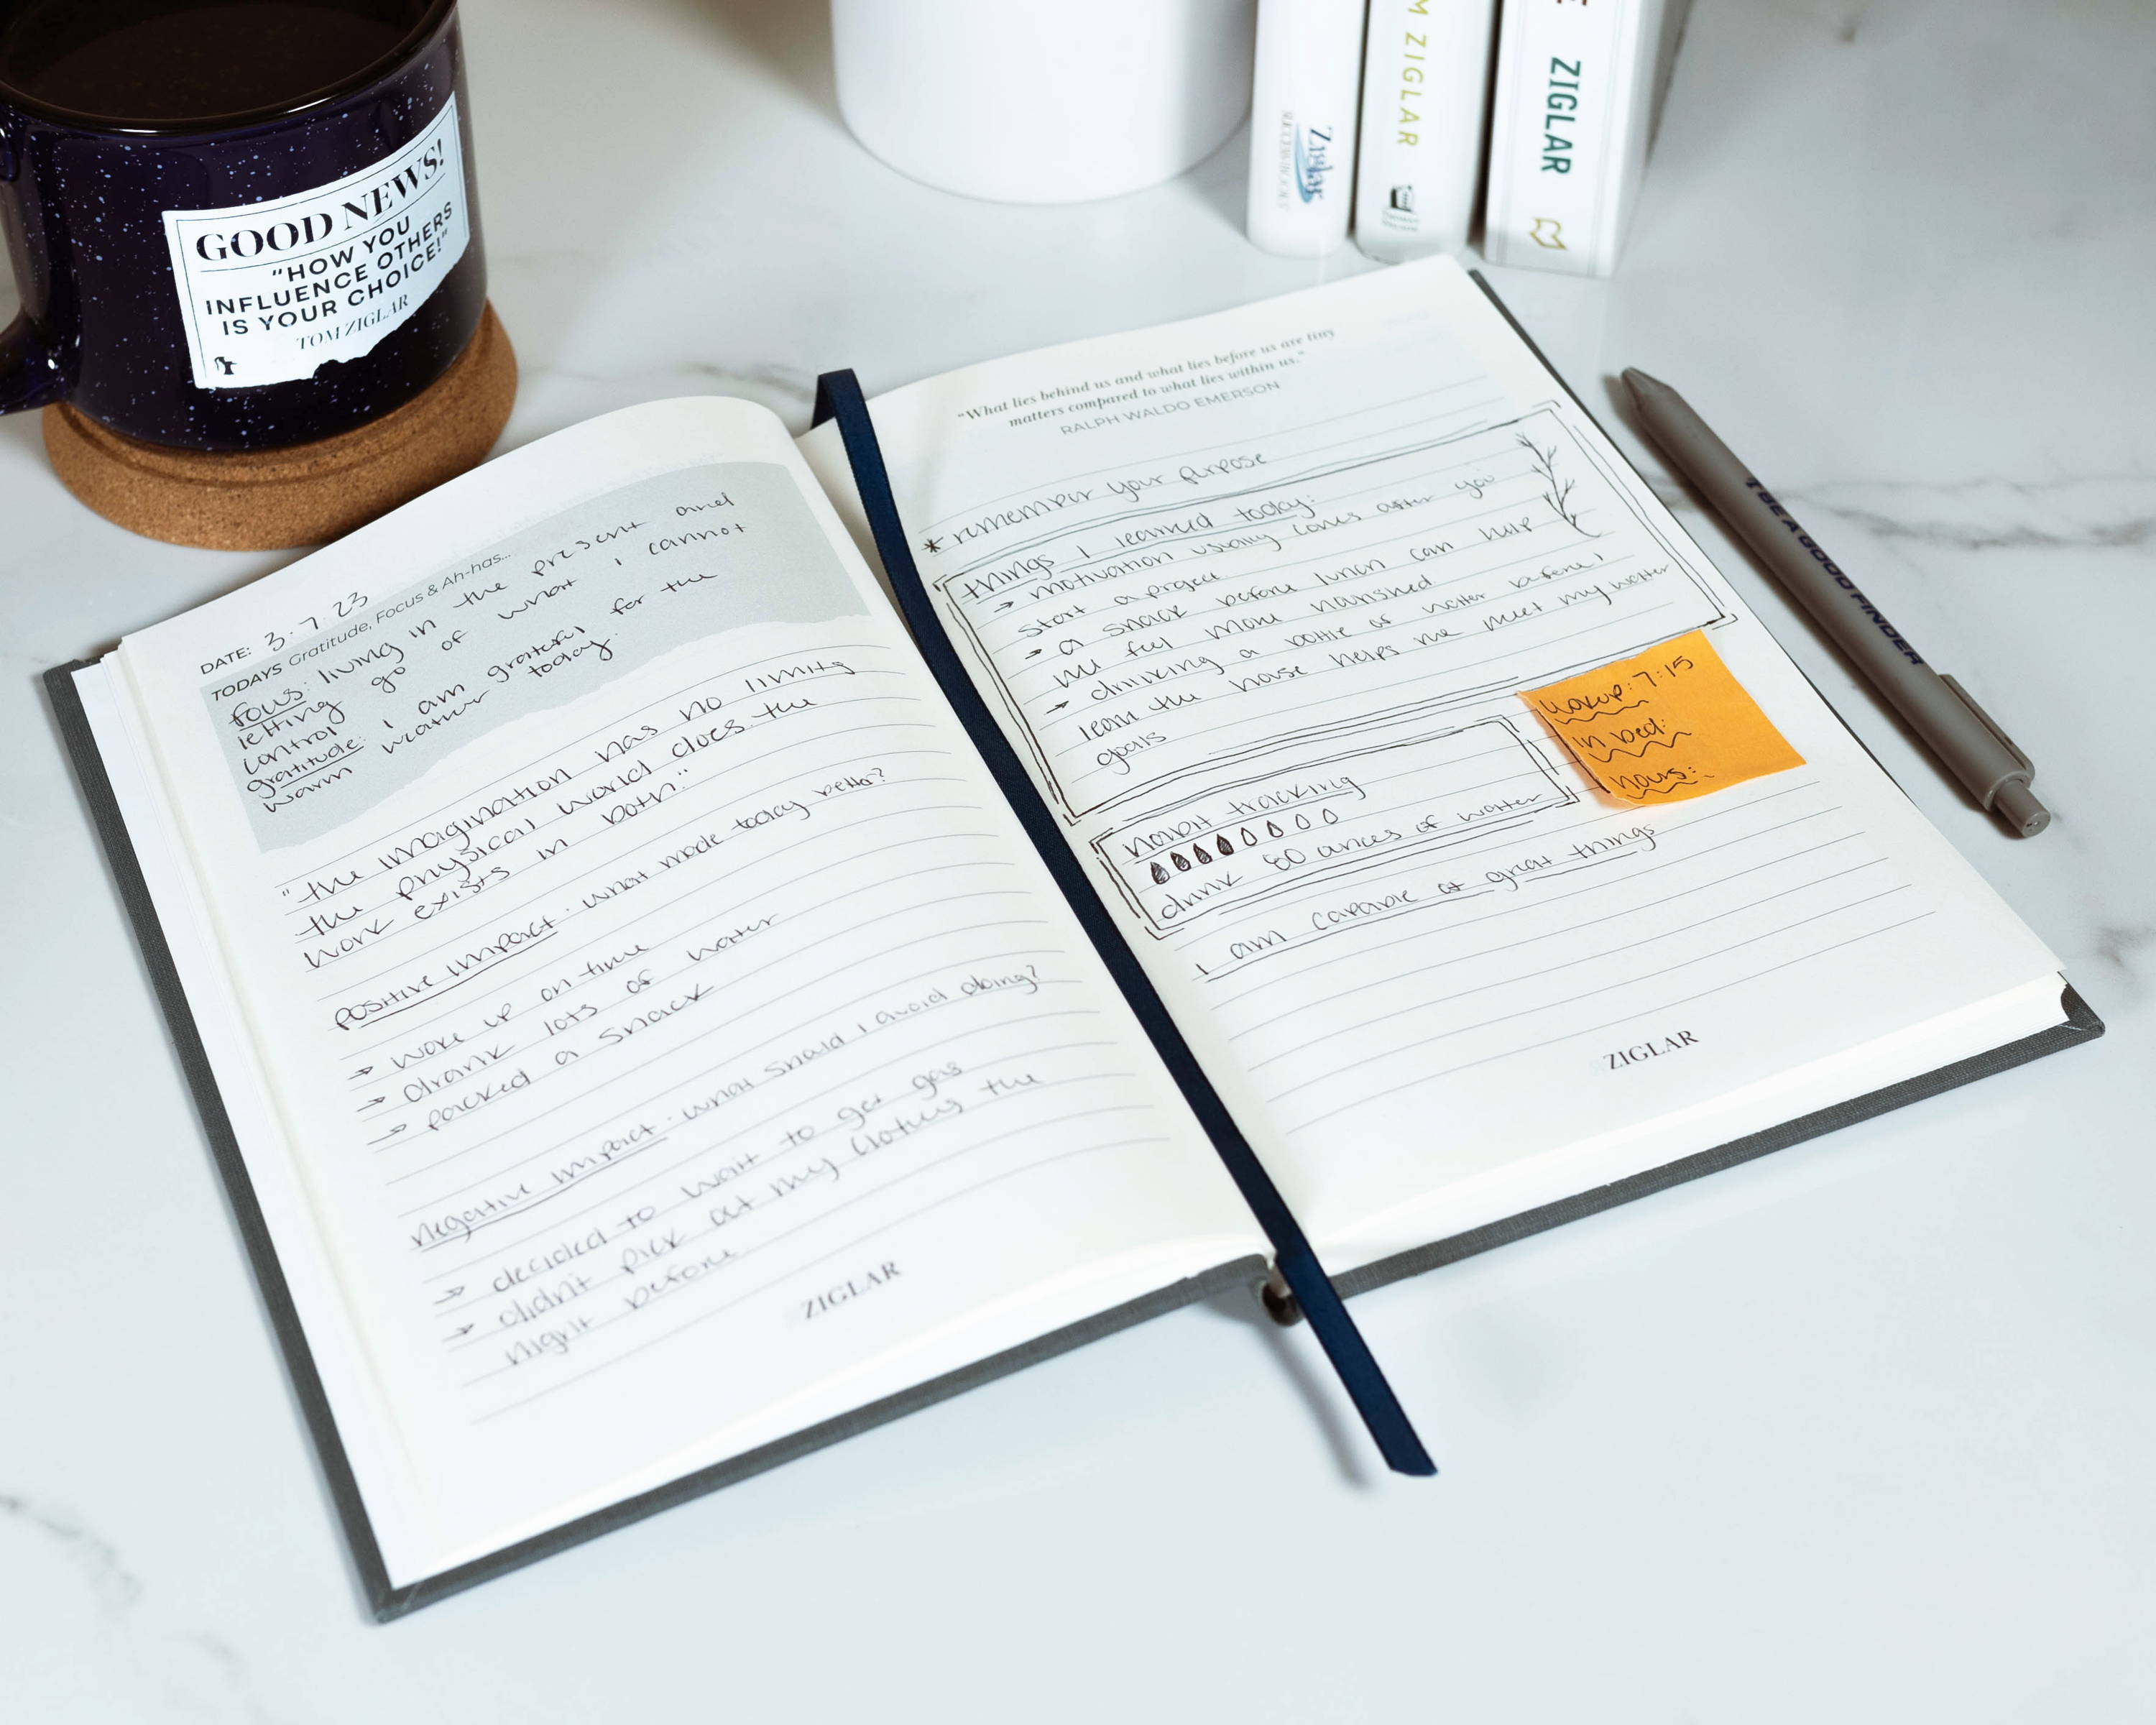 GOOD NEWS!
"HOW YOU
INFLUENCE OTHERS
IS YOUR CHOICE!"
TOM ZIGLAR
Ziglar
M ZIGLAR
ZIGLAR
DATE: 3.7.23
TODAYS Gratitude, Focus & Ah-has...
focus: living in the present and
letting go of what I cannot
control
gratitude: I am grateful for the
warm weather today.
"the imagination has no limits
the physical world does. the
work exists in both."
positive impact. what made today better?
→ woke up on time
→ drank lots of water
→ packed a snack
negative impact. what should I avoid doing?
→ decided to wait to get gas
→ didn't pick out my clothes the
night before.
ZIGLAR
"What lies behind us and what lies before us are tiny
matters compared to what lies within us."
RALPH WALDO EMERSON
* remember your purpose
things I learned today:
→ motivation usually comes after you
start a project
→ a snack before lunch can help
me feel more nourished
→ drinking a bottle of water before I
leave the house helps me meet my water
goals
habit tracking
drink 80 ounces of water
I am capable of great things
ZIGLAR
wakeup: 7:15
in bed:
hours:
I BE A GOOD FINDER